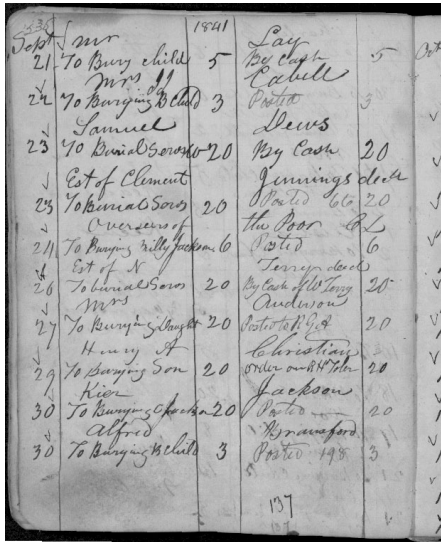 1841
Sept Mr Lay
21 To Bury child 5 By Cash 5
Mrs Cabell
22 To Burying B Child 3 Posted 3
Samuel Dews
23 To Burial Servs 20 By Cash 20
Est of Clement Jennings decd
23 To Burial Servs 20 Posted 66 20
Overseers of the Poor C L
24 To Burying Billy Jackson 6 Posted 6
Est of N Terry decd
26 To burial Servs 20 By Cash of W Terry 20
Mrs Anderson
27 To Burying Daught 20 Posted to 20
Henry A Christian
29 To Burying Son 20 order on R H Toler 20
Kier Jackson
30 To Burying 20 Posted 20
Alfred
30 To Burying B Child 3 Posted 198 3
137
Oct